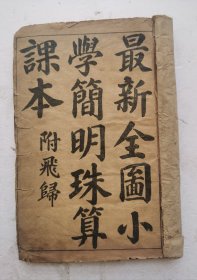 最新全圖小
學簡明珠算
課本
附飛歸